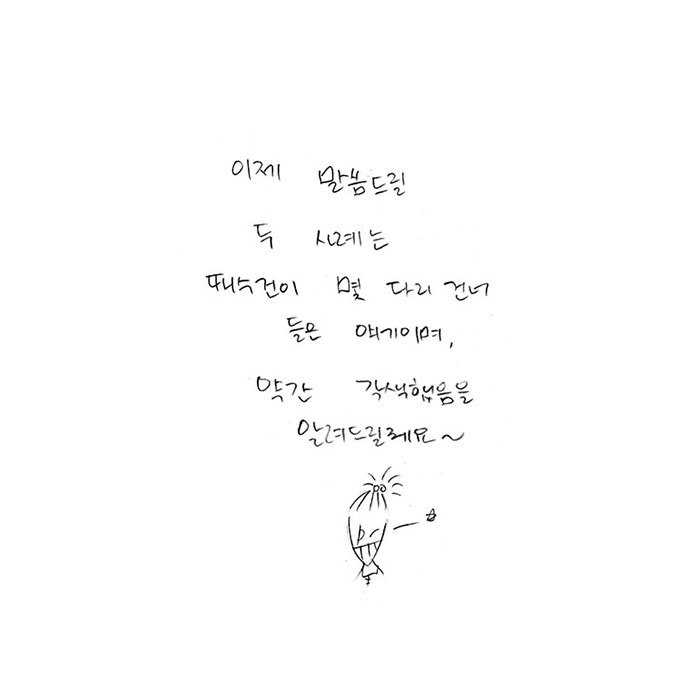 이제 말씀드릴
두 사례는
때수건이 몇 다리 건너
들은 얘기이며,
약간 각색했음을
알려드릴께요~